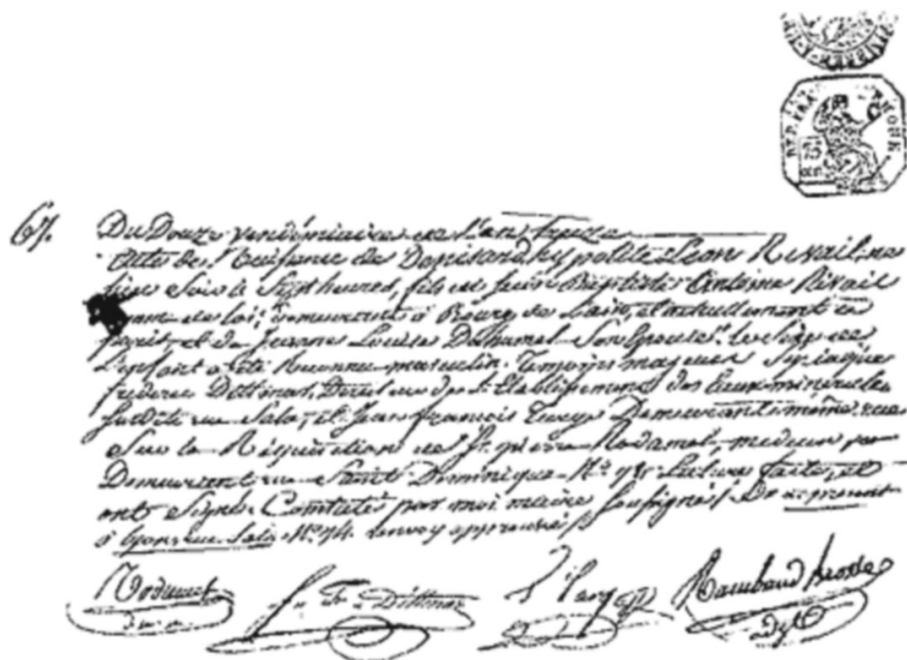 Du Douze vendémiaire de l'an treize
Acte de Naissance de Denisard hypolite Leon Rivail né
hier Soir à Sept heures, fils de Jean Baptiste Antoine Rivail
homme de loi, demeurant à Bourg de l'ain, et actuellement à
paris, et de Jeanne Louise Duhamel Son Epouse. le Sexe de
L'enfant a été Reconnu masculin. Temoins majeurs Syriaque
frederic Dittmar, Directeur de l'Etablissement des Eaux minerales
Susdite rue Sala, et Jean francois Targe Demeurant même rue
Sur la Requisition de Sr. pierre Rodamel, medecin
Demeurant rue Saint Dominique No. 78. Lecture faite, et
ont Signé. Constaté par moi maire Soussigné.
à lyon rue Sala No. 74. renvoy approuvé
Rodamel
Dittmar
Targe
Rambaud brosse